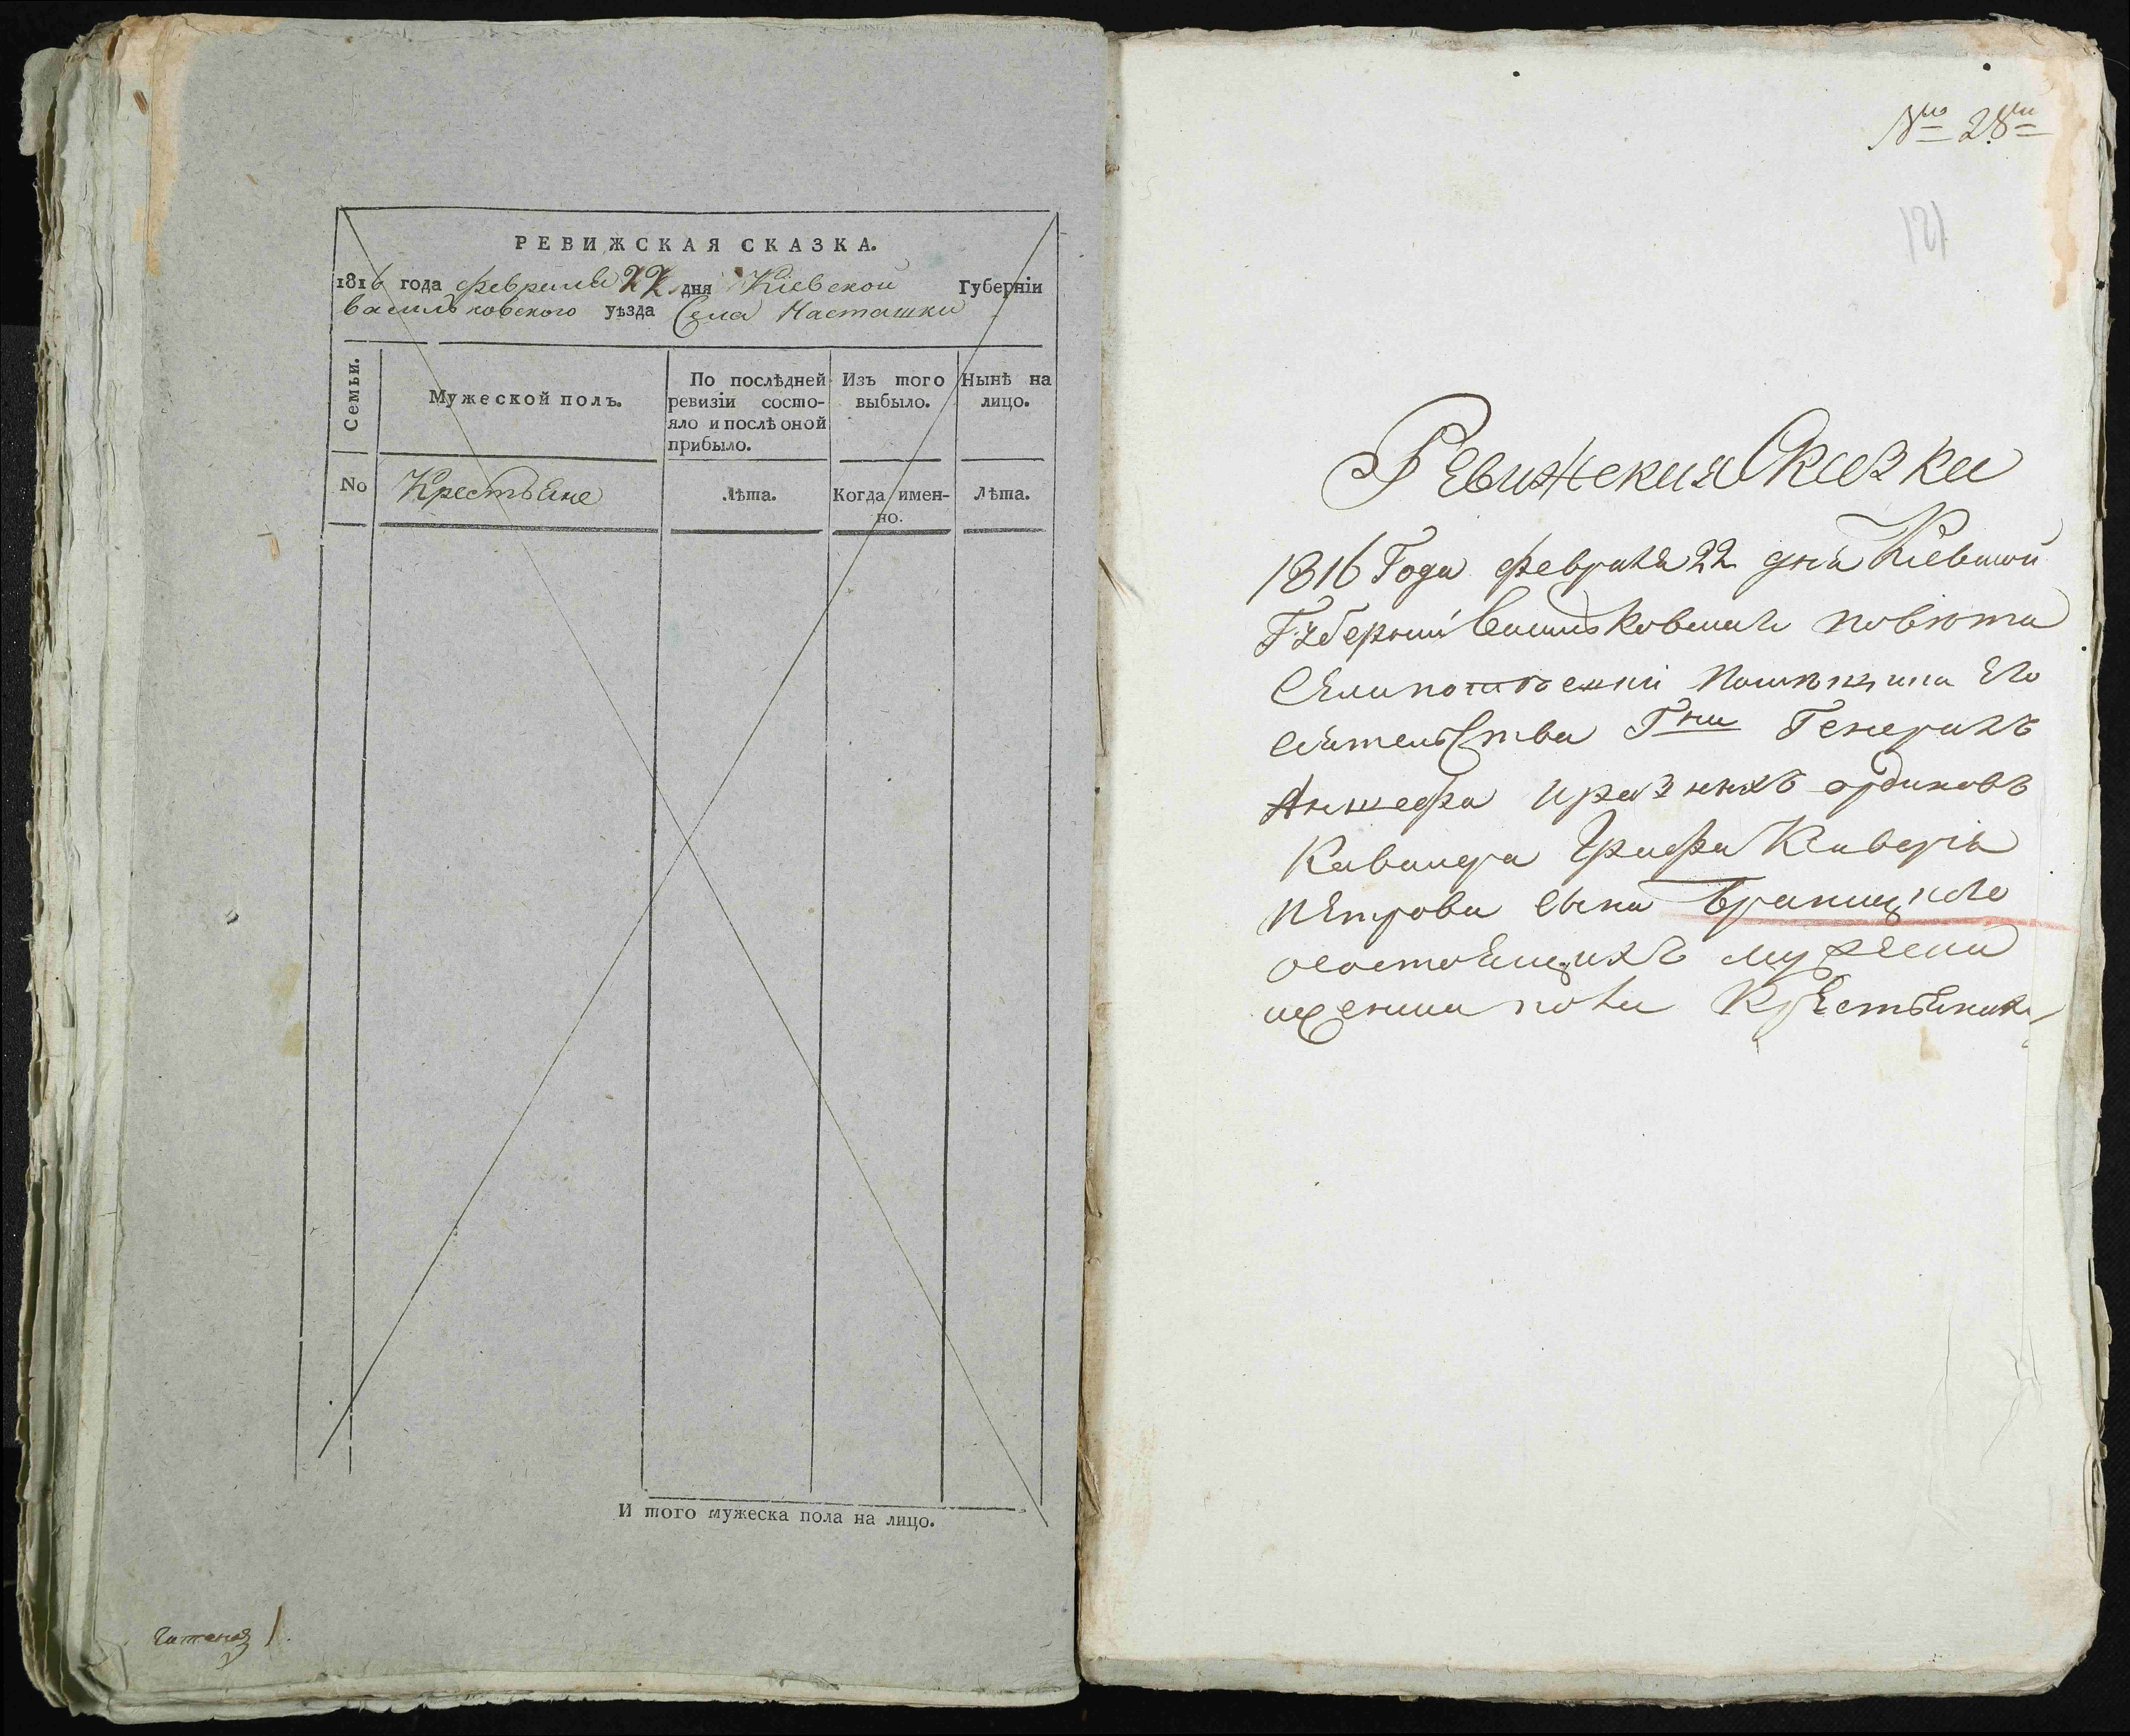 РЕВИЖСКАЯ СКАЗКА.
1816 года февраля 22 дня Кіевской Губерніи
васильковского уѣзда Села Насташки
Семьи.
Мужеской полъ.
По послѣдней ревизіи состо-
яло и послѣ оной
прибыло.
Изъ того
выбыло.
Нынѣ на
лицо.
No
Крестьяне
Лѣта.
Когда имен-
но.
Лѣта.
И того мужеска пола на лицо.
1.
№ 28
121
Ревижския Сказки
1816 Года февраля 22 дня Кіевской
Губернии васильковскаго повѣта
Села помѣщика Его
сиятельства Гна Генералъ
Аншефа и разныхъ орденовъ
Кавалера Графа Ксаверія
Петрова сына Браницкаго
состоящихъ мужеска
и женска пола Крестьянахъ